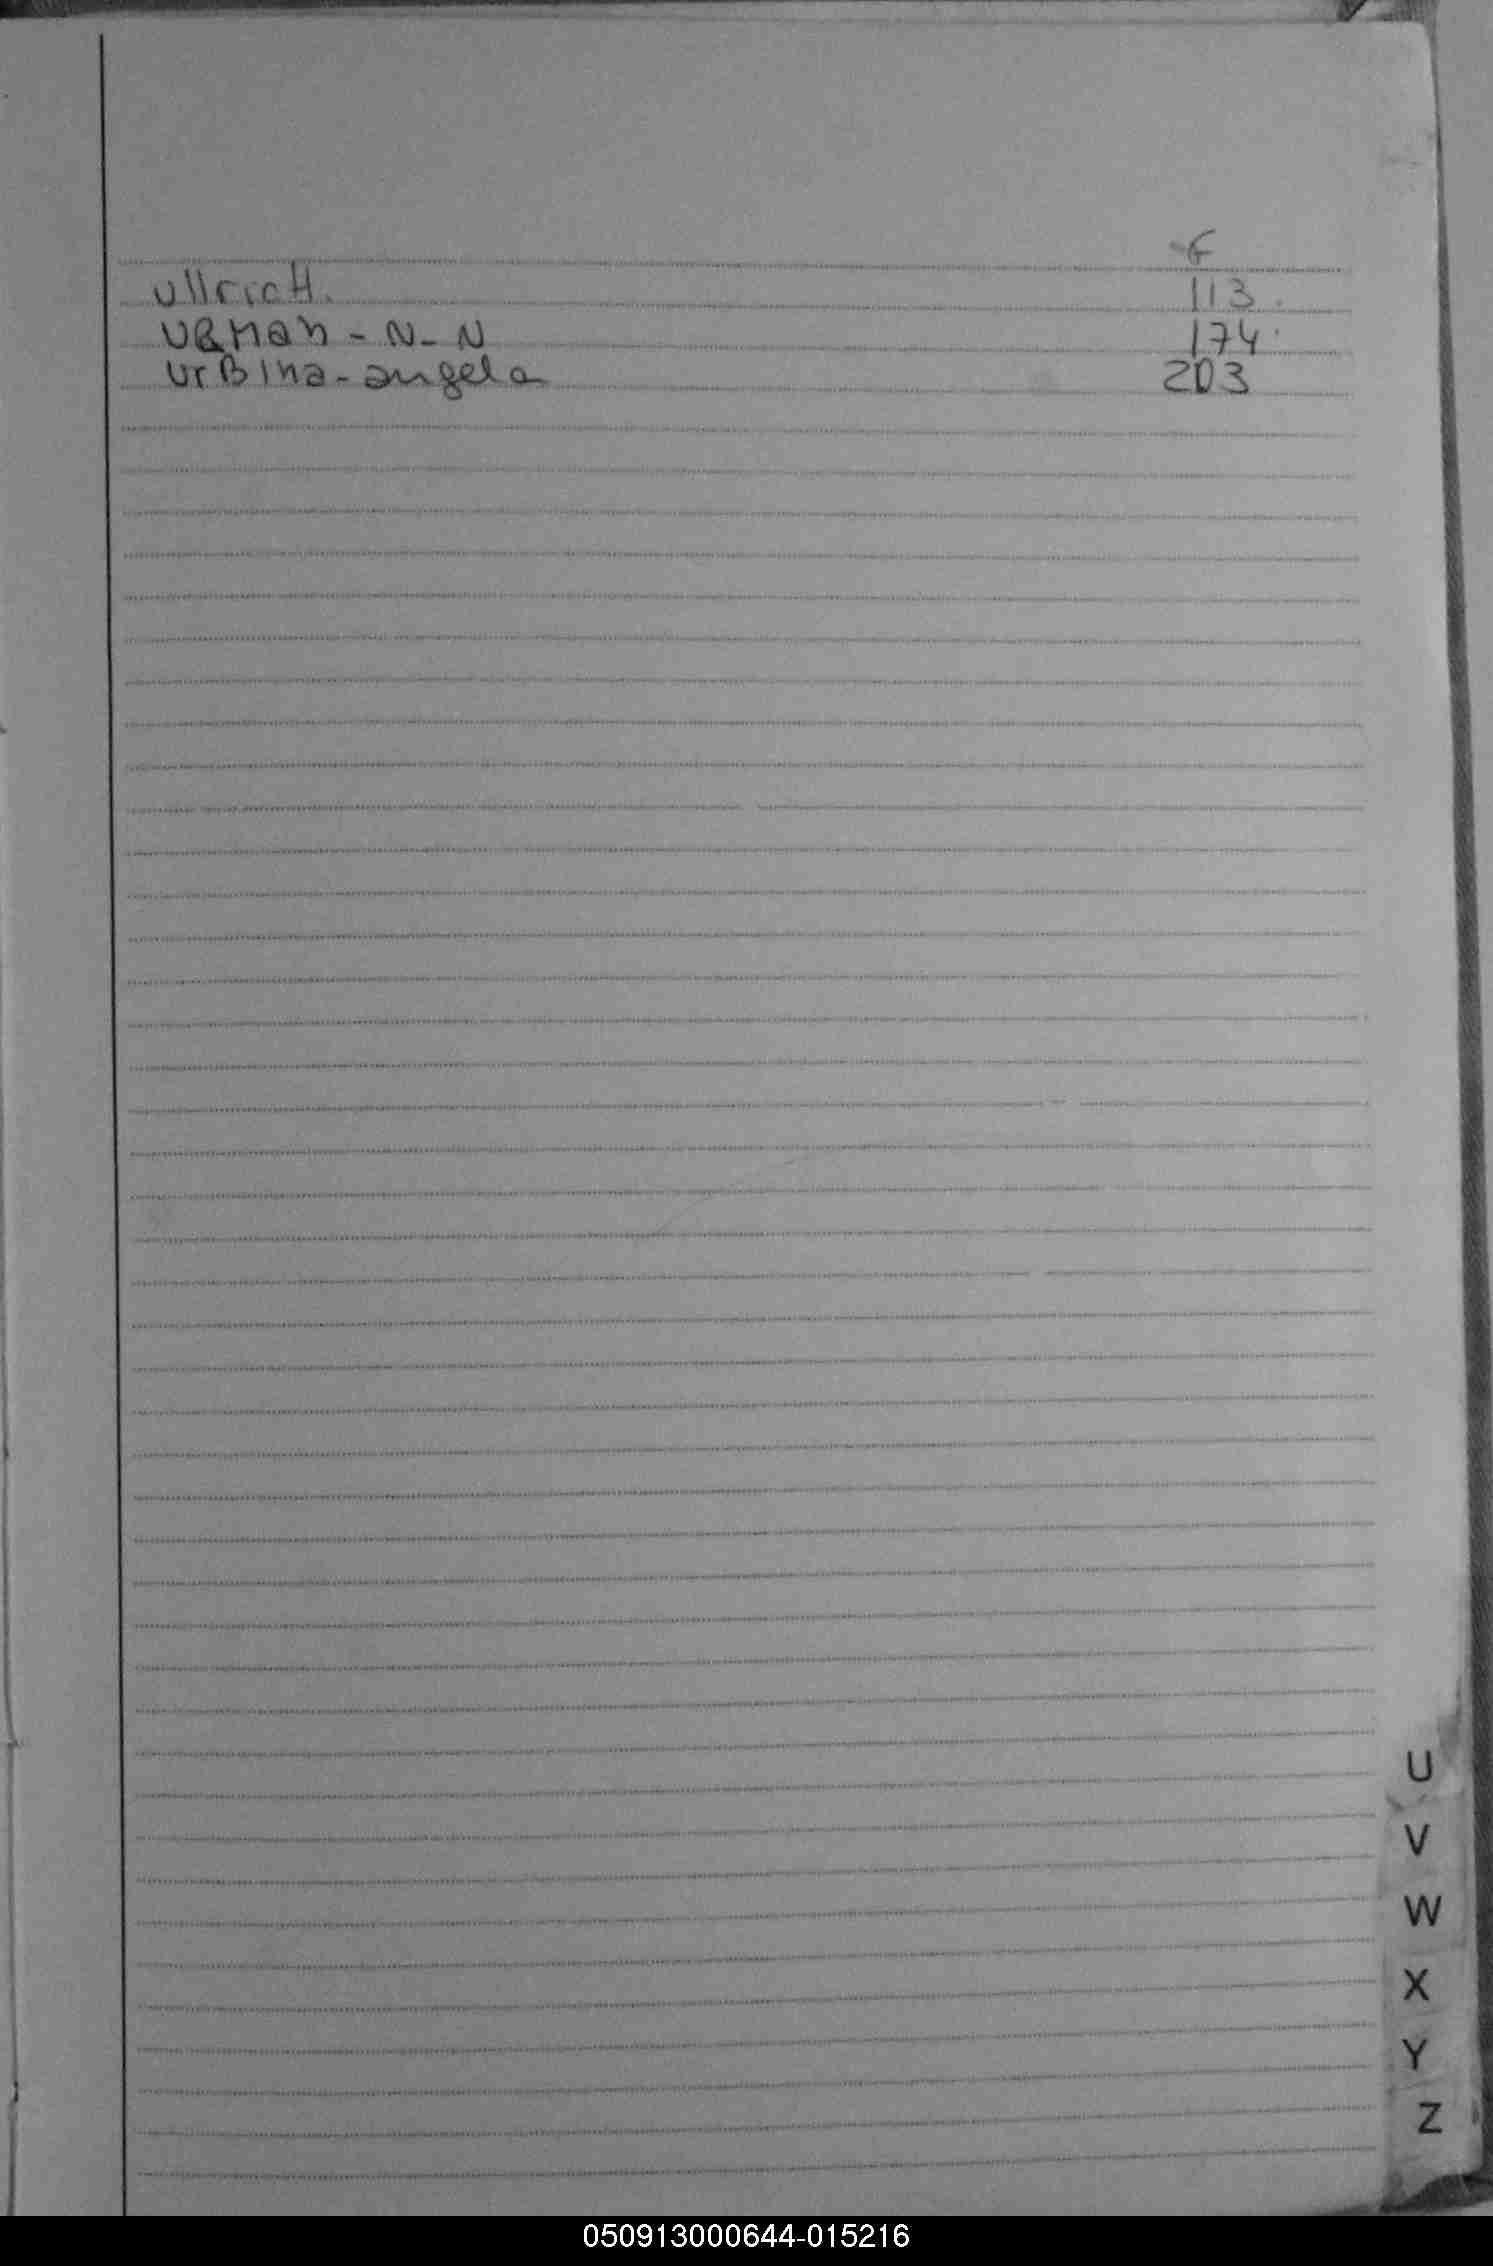 F
UllricH. 113.
URMan - N - N 174.
UrBina - angela 203
U
V
W
X
Y
Z
050913000644-015216